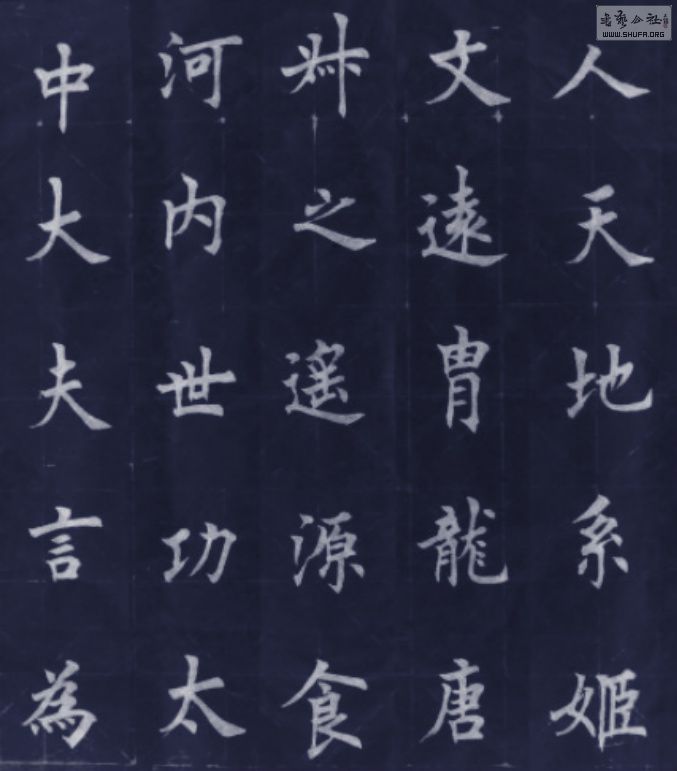 人天地系姬
文遠胄龍唐
叔之遙源食
河内世功太
中大夫言為
書藝公社
WWW.SHUFA.ORG